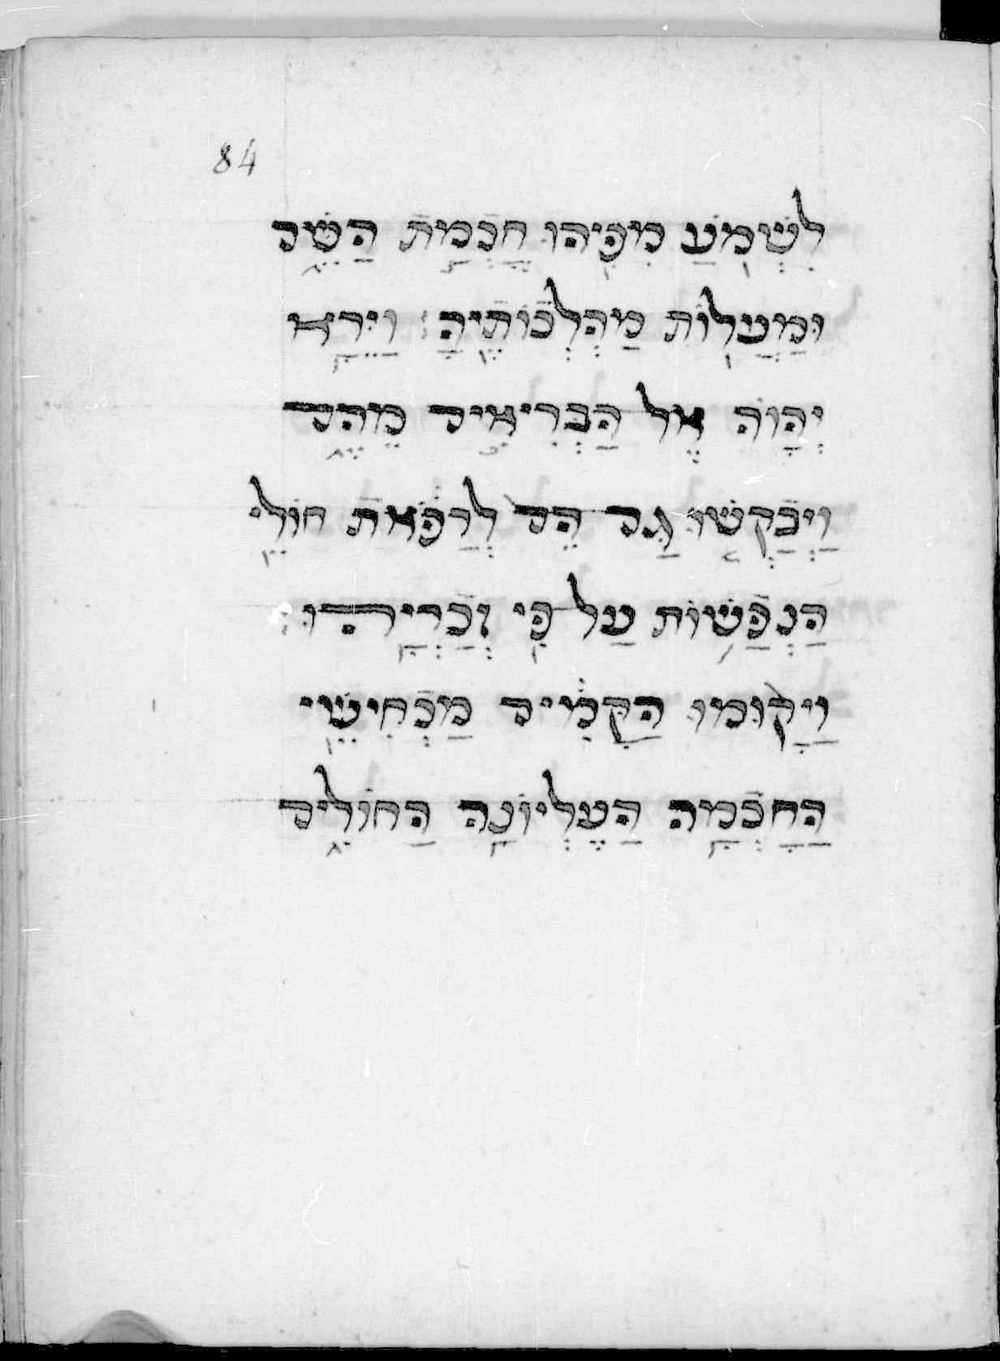 84
לִשְׁמֹעַ מִפִּיהוּ חָכְמַת הַשֵּׁם
וּמַעֲלוֹת מַהְלְכוֹתֶיהָ׃ וַיַּרְא
יְהוָֹה אֶל הַבְּרִיאִים מֵהֶם
וַיְבַקְשׁוּ גַּם הֵם לְרַפֹּאת חוֹלֵי
הַנְּפָשׁוֹת עַל פִּי דְּבָרָיו
וַיָּקוּמוּ הַקָּמִים מַכְחִישֵׁי
הַחָכְמָה הָעֶלְיוֹנָה הַחוֹלִים